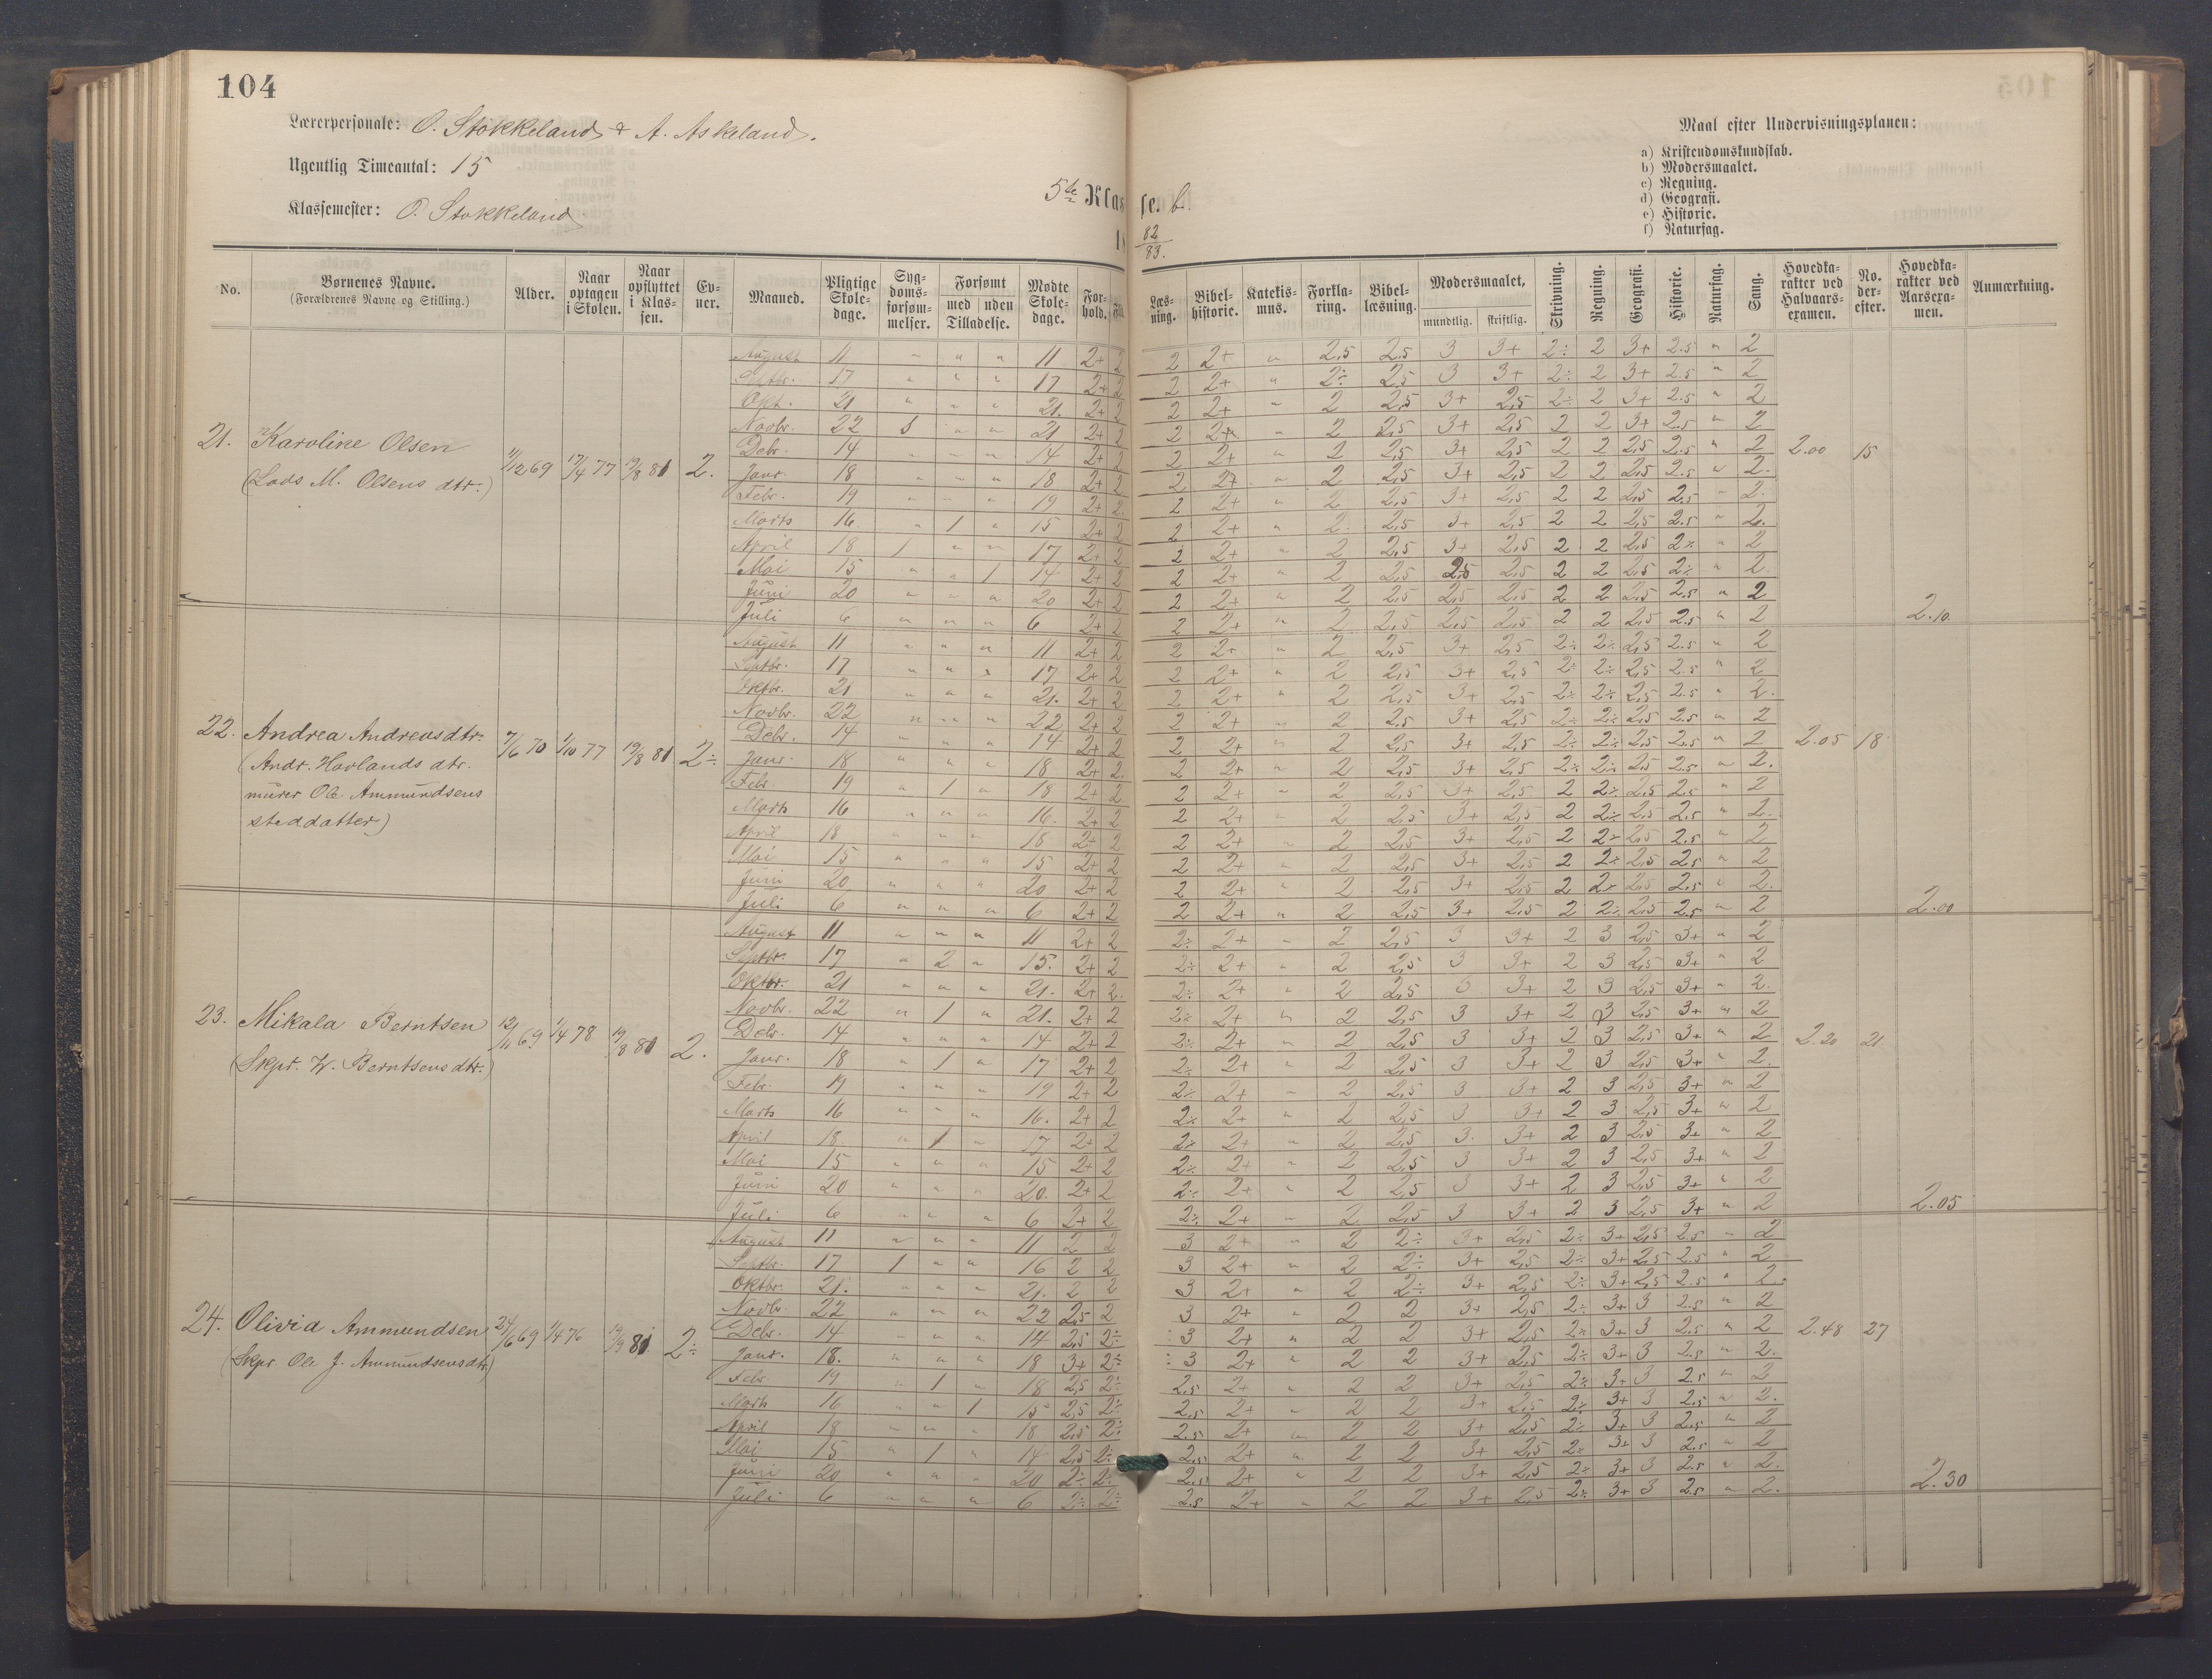 104
Lærerpersonale: O. Stokkeland & A. Askeland.
Ugentlig Timeantal: 15
Klassemester: O. Stokkeland
5te Klasse. b.
18 82/83.
Maal efter Undervisningsplanen:
a) Kristendomskundskab.
b) Modersmaalet.
c) Regning.
d) Geografi.
e) Historie.
f) Naturfag.
No. Børnenes Navne. (Forældrenes Navne og Stilling.) Alder. Naar optagen i Skolen. Naar opflyttet i Klassen. Evner. Maaned. Pligtige Skoledage. Sygdomsforsømmelser. Forsømt med uden Tilladelse. Mødte Skoledage. Forhold. Læsning. Bibelhistorie. Katekismus. Forklaring. Bibellæsning. Modersmaalet, mundtlig. skriftlig. Skrivning. Regning. Geografi. Historie. Naturfag. Sang. Hovedkarakter ved Halvaarsexamen. No. derefter. Hovedkarakter ved Aarsexamen. Anmærkning.
21. Karoline Olsen
(Lods M. Olsens dtr.)
11/12 69 17/4 77 19/8 81 2.
August 11 " " " 11 2+ 2 2 2+ " 2,5 2,5 3 3+ 2÷ 2 3+ 2.5 " 2
Septbr. 17 " " " 17 2+ 2 2 2+ " 2÷ 2,5 3 3+ 2÷ 2 3+ 2.5 " 2
Okt. 21 " " " 21. 2+ 2 2 2+ " 2 2,5 3+ 2,5 2÷ 2 3+ 2.5 " 2
Novbr. 22 1 " " 21 2+ 2 2 2+ " 2 2,5 3+ 2,5 2 2 3+ 2.5 " 2
Debr. 14 " " " 14 2+ 2 2 2+ " 2 2,5 3+ 2,5 2 2 2,5 2.5 " 2 2.00 15
Janr. 18 " " " 18 2+ 2 2 2+ " 2 2,5 3+ 2,5 2 2 2,5 2.5 " 2.
Febr. 19 " " " 19 2+ 2 2 2+ " 2 2,5 3+ 2,5 2 2 2,5 2.5 " 2.
Marts 16 " 1 " 15 2+ 2 2 2+ " 2 2,5 3+ 2,5 2 2 2,5 2.5 " 2.
April 18 1 " " 17 2+ 2 2 2+ " 2 2,5 3+ 2,5 2 2 2,5 2÷ " 2
Mai 15 " " 1 14 2+ 2 2 2+ " 2 2,5 2,5 2,5 2 2 2,5 2÷ " 2.
Juni 20 " " " 20 2+ 2 2 2+ " 2 2,5 2,5 2,5 2 2 2,5 2.5 " 2
Juli 6 " " " 6 2+ 2 2 2+ " 2 2,5 2,5 2,5 2 2 2,5 2.5 " 2 2.10
22. Andrea Andreasdtr.
(Andr. Havlands dtr.
murer Ole Ammundsens
steddatter)
7/6 70 1/10 77 19/8 81. 2÷
August 11 " " " 11 2+ 2 2 2+ " 2 2,5 3+ 2,5 2÷ 2÷ 2,5 2.5 " 2
Septbr. 17 " " " 17 2+ 2 2 2+ " 2 2,5 3+ 2,5 2÷ 2÷ 2,5 2.5 " 2
Oktbr. 21 " " " 21. 2+ 2 2 2+ " 2 2,5 3+ 2,5 2÷ 2÷ 2,5 2.5 " 2.
Novbr. 22 " " " 22 2+ 2 2 2+ " 2 2,5 3+ 2,5 2÷ 2÷ 2,5 2.5 " 2
Debr. 14 " " " 14 2+ 2 2 2+ " 2 2,5 3+ 2,5 2÷ 2÷ 2,5 2.5 " 2 2.05 18
Janr. 18 " " " 18 2+ 2. 2 2+ " 2 2,5 3+ 2,5 2÷ 2÷ 2,5 2.5 " 2.
Febr. 19 " 1 " 18 2+ 2 2 2+ " 2 2,5 3+ 2,5 2 2÷ 2,5 2.5 " 2
Marts 16 " " " 16. 2+ 2 2 2+ " 2 2,5 3+ 2,5 2 2÷ 2,5 2.5 " 2.
April 18 " " " 18 2+ 2 2 2+ " 2 2,5 3+ 2,5 2 2÷ 2,5 2.5 " 2
Mai 15 " " " 15 2+ 2 2 2+ " 2 2,5 3+ 2,5 2 2÷ 2,5 2.5 " 2
Juni 20 " " " 20 2+ 2 2 2+ " 2 2,5 3+ 2,5 2 2÷ 2,5 2.5 " 2.
Juli 6 " " " 6 2+ 2 2 2+ " 2 2,5 3+ 2,5 2 2÷ 2,5 2.5 " 2 2.00
23. Mikala Berntsen
(Skpr. W. Berntsens dtr.)
12/11 69 1/4 78 19/8 81 2.
August 11 " " " 11 2+ 2 2÷ 2+ " 2 2,5 3 3+ 2 3 2,5 3+ " 2
Septbr. 17 " 2 " 15. 2+ 2 2÷ 2+ " 2 2,5 3 3+ 2 3 2,5 3+ " 2
Oktbr. 21 " " " 21. 2+ 2. 2÷ 2+ " 2 2,5 3 3+ 2 3 2,5 3+ " 2.
Novbr. 22 " 1 " 21. 2+ 2 2÷ 2+ " 2 2,5 3 3+ 2 3 2,5 3+ " 2
Debr. 14 " " " 14 2+ 2 2÷ 2+ " 2 2,5 3 3+ 2 3 2,5 3+ " 2 2.20 21
Janr. 18 " 1 " 17 2+ 2 2÷ 2+ " 2 2,5 3 3+ 2 3 2,5 3+ " 2.
Febr. 19 " " " 19 2+ 2 2÷ 2+ " 2 2,5 3 3+ 2 3 2,5 3+ " 2
Marts 16 " " " 16. 2+ 2 2÷ 2+ " 2 2,5 3 3+ 2 3 2,5 3+ " 2
April 18. " 1 " 17 2+ 2 2÷ 2+ " 2 2,5 3. 3+ 2 3 2,5 3+ " 2
Mai 15 " " " 15 2+ 2 2÷ 2+ " 2 2,5 3 3+ 2 3 2,5 3+ " 2
Juni 20 " " " 20. 2+ 2 2÷ 2+ " 2 2,5 3 3+ 2 3 2,5 3+ " 2
Juli 6 " " " 6 2+ 2 2÷ 2+ " 2 2,5 3 3+ 2 3 2,5 3+ " 2 2.05
24. Olivia Ammundsen
(Skpr. Ole J. Ammundsens dtr.)
24/6 69 1/4 76 81 2÷
August 11 " " " 11 2 2 3 2+ " 2 2÷ 3+ 2,5 2÷ 3+ 2,5 2.5 " 2
Septbr. 17 1 " " 16 2 2 3 2+ " 2 2÷ 3+ 2,5 2÷ 3+ 2,5 2.5 " 2
Oktbr. 21. " " " 21. 2 2 3 2+ " 2 2÷ 3+ 2,5 2÷ 3+ 2,5 2.5 " 2.
Novbr. 22 " " " 22 2,5 2 3 2+ " 2 2 3+ 2,5 2÷ 3+ 3 2.5 " 2
Debr. 14 " " " 14 2,5 2÷ 3 2+ " 2 2 3+ 2,5 2÷ 3+ 3 2.5 " 2 2.48 27
Janr. 18. " " " 18 3+ 2÷ 3 2+ " 2 2 3+ 2,5 2÷ 3+ 3 2.5 " 2.
Febr. 19 " 1 " 18 2,5 2÷ 2.5 2+ " 2 2 3+ 2,5 2÷ 3+ 3 2.5 " 2
Marts 16 " " 1 15 2,5 2÷ 2.5 2+ " 2 2 3+ 2,5 2÷ 3+ 3 2.5 " 2.
April 18 " " " 18 2,5 2÷ 2.5 2+ " 2 2 3+ 2,5 2÷ 3+ 3 2.5 " 2
Mai 15 " 1 " 14 2,5 2÷ 2.5 2+ " 2 2 3+ 2,5 2÷ 3+ 3 2.5 " 2
Juni 20 " " " 20 2÷ 2÷ 2.5 2+ " 2 2 3+ 2,5 2÷ 3+ 3 2.5 " 2.
Juli 6 " " " 6 2÷ 2÷ 2.5 2+ " 2 2 3+ 2,5 2÷ 3+ 3 2.5 " 2. 2.30